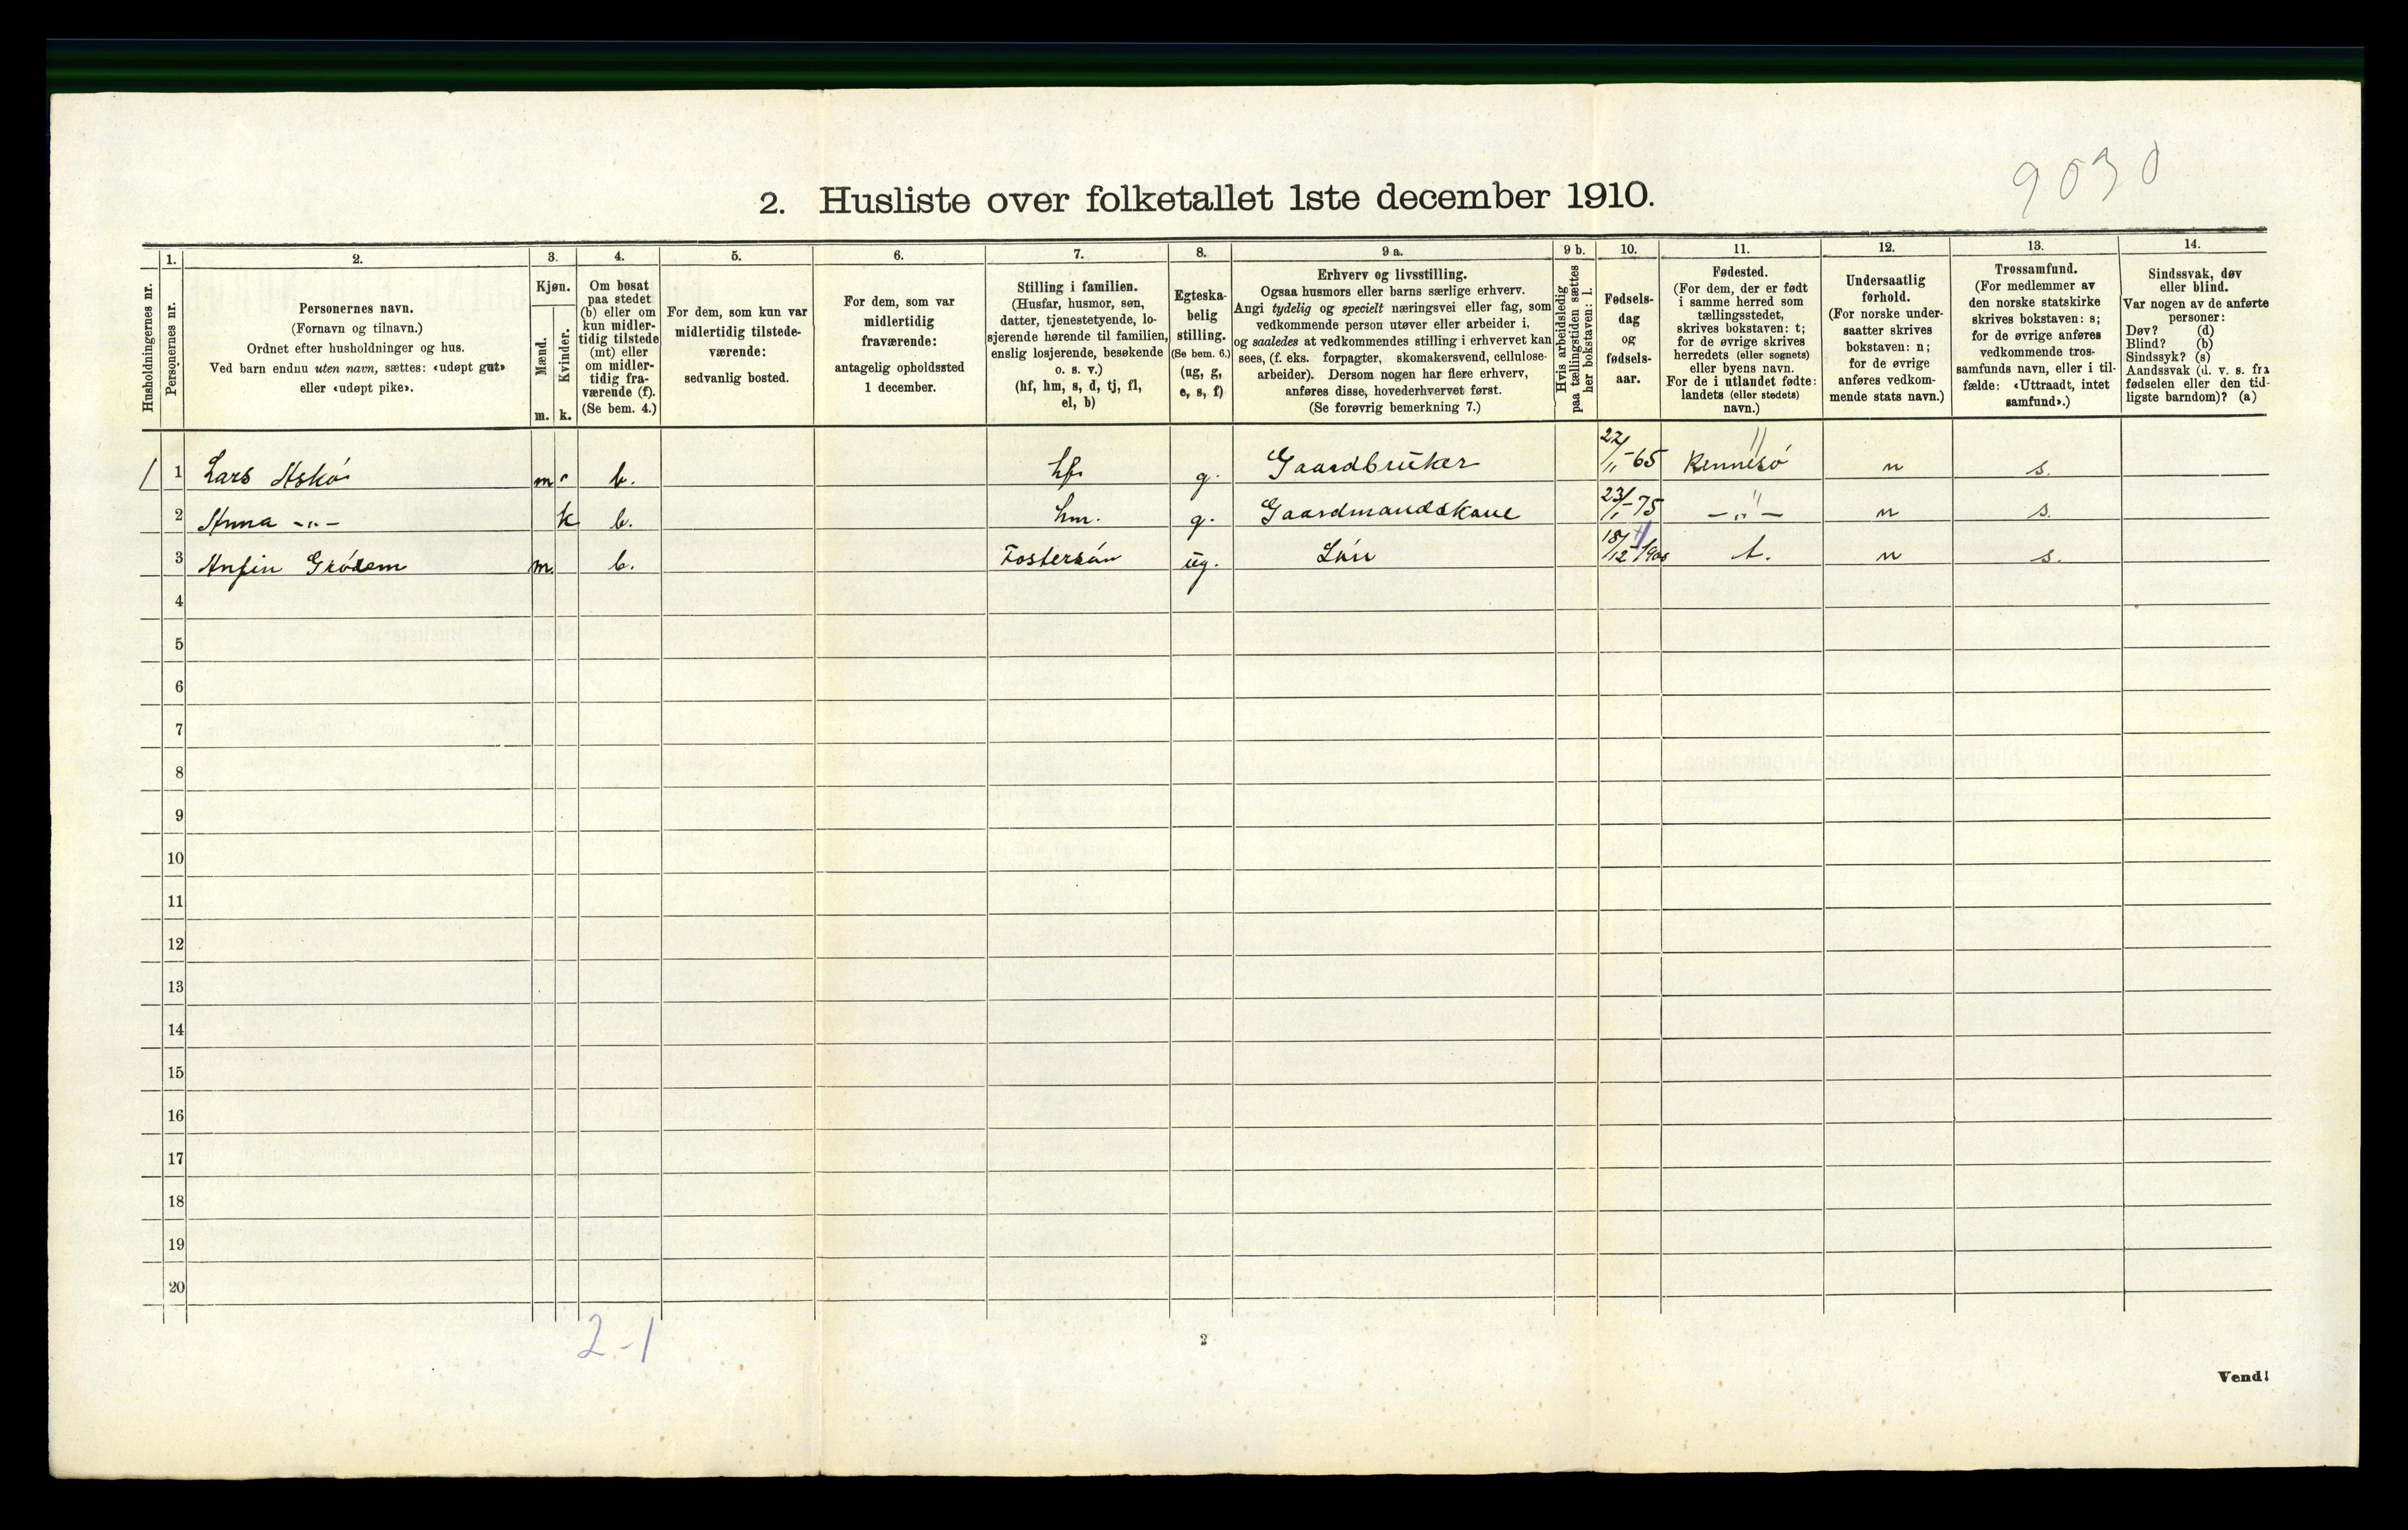 9030
2. Husliste over folketallet 1ste december 1910.
Husholdningernes nr.
1.
Personernes nr.
2.
Personernes navn.
(Fornavn og tilnavn.)
Ordnet efter husholdninger og hus.
Ved barn endnu uten navn, sættes: «udøpt gut»
eller «udøpt pike».
3.
Kjøn.
Mænd.
m.
Kvinder.
k.
4.
Om bosat
paa stedet
(b) eller om
kun midler-
tidig tilstede
(mt) eller
om midler-
tidig fra-
værende (f).
(Se bem. 4.)
5.
For dem, som kun var
midlertidig tilstede-
værende:
sedvanlig bosted.
6.
For dem, som var
midlertidig
fraværende:
antagelig opholdssted
1 december.
7.
Stilling i familien.
(Husfar, husmor, søn,
datter, tjenestetyende, lo-
sjerende hørende til familien,
enslig losjerende, besøkende
o. s. v.)
(hf, hm, s, d, tj, fl,
el, b)
8.
Egteska-
belig
stilling.
(Se bem. 6.)
(ug, g,
e, s, f)
9 a.
Erhverv og livsstilling.
Ogsaa husmors eller barns særlige erhverv.
Angi tydelig og specielt næringsvei eller fag, som
vedkommende person utøver eller arbeider i,
og saaledes at vedkommendes stilling i erhvervet kan
sees, (f. eks. forpagter, skomakersvend, cellulose-
arbeider). Dersom nogen har flere erhverv,
anføres disse, hovederhvervet først.
(Se forøvrig bemerkning 7.)
9 b.
Hvis arbeidsledig
paa tællingstiden sættes
her bokstaven: l.
10.
Fødsels-
dag
og
fødsels-
aar.
11.
Fødested.
(For dem, der er født
i samme herred som
tællingsstedet,
skrives bokstaven: t;
for de øvrige skrives
herredets (eller sognets)
eller byens navn.
For de i utlandet fødte:
landets (eller stedets)
navn.)
12.
Undersaatlig
forhold.
(For norske under-
saatter skrives
bokstaven: n;
for de øvrige
anføres vedkom-
mende stats navn.)
13.
Trossamfund.
(For medlemmer av
den norske statskirke
skrives bokstaven: s;
for de øvrige anføres
vedkommende tros-
samfunds navn, eller i til-
fælde: «Uttraadt, intet
samfund».)
14.
Sindssvak, døv
eller blind.
Var nogen av de anførte
personer:
Døv? (d)
Blind? (b)
Sindssyk? (s)
Aandssvak (d. v. s. fra
fødselen eller den tid-
ligste barndom)? (a)
1 Lars Askø m. b. hf. g. Gaardbruker 22/11-65 Rennesø n s.
2 Anna -"- k b. hm. g. Gaardmandskone 23/1-75 -"- n s.
3 Anfin Grødem m. b. Fostersøn ug. Søn 18/12 t. n s.
4
5
6
7
8
9
10
11
12
13
14
15
16
17
18
19
20
2-1
2
Vend!